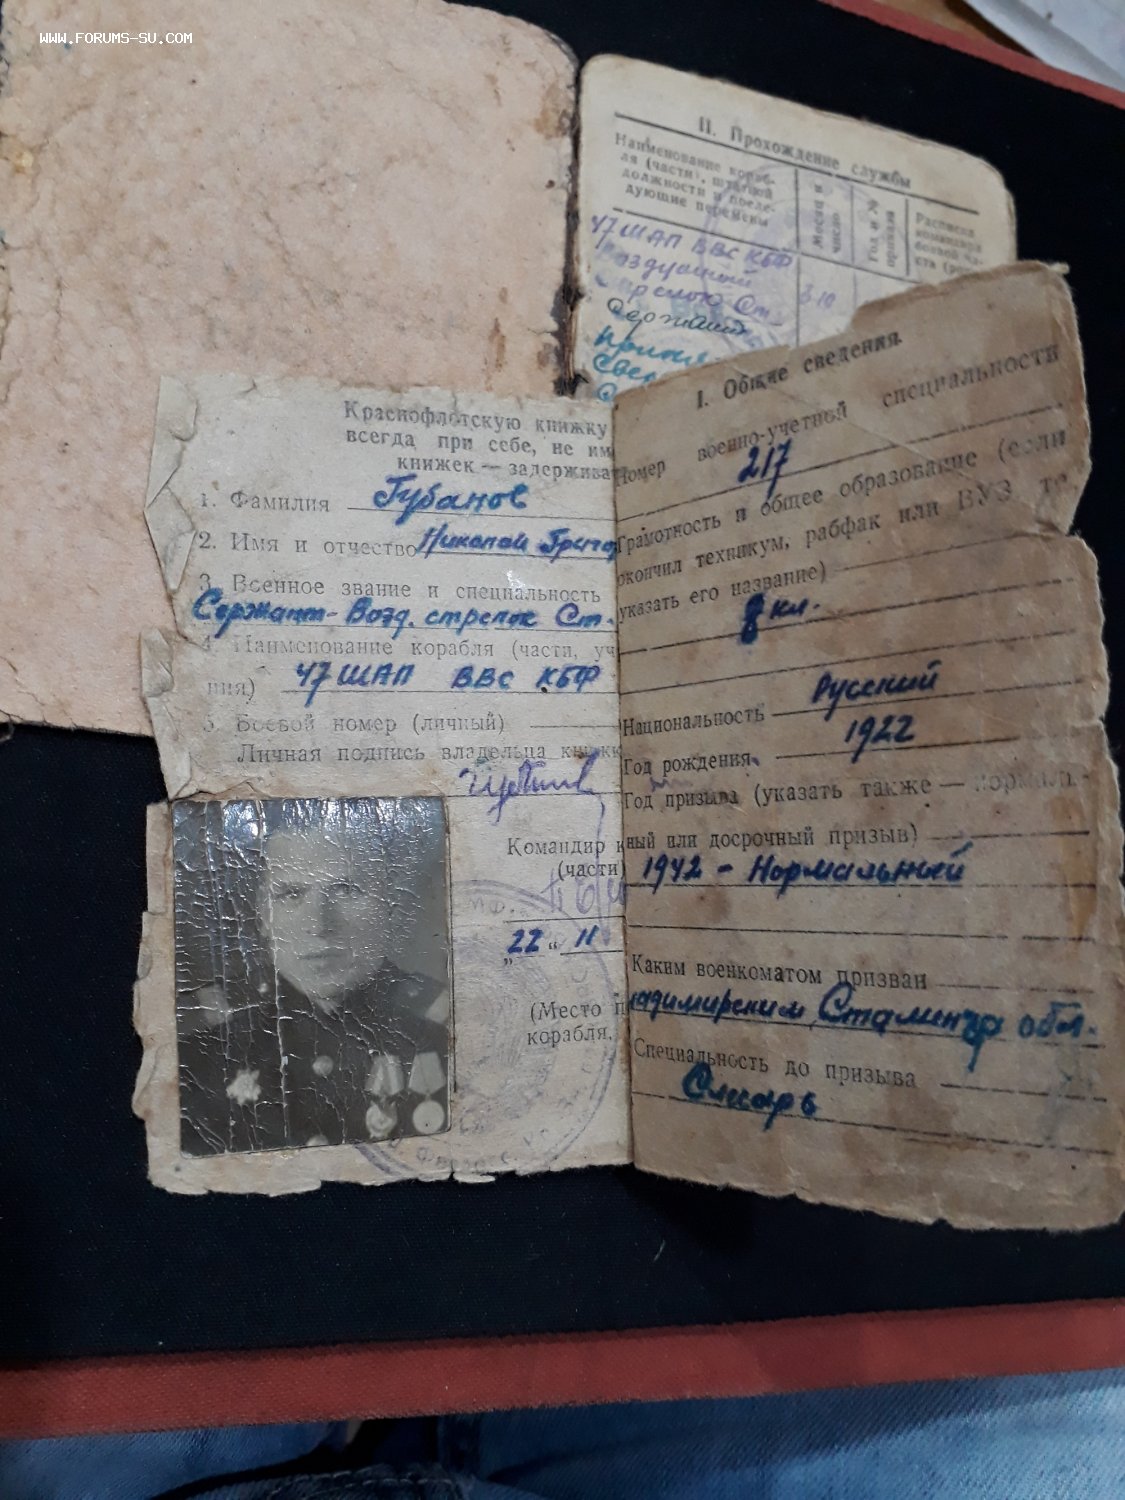 WWW.FORUMS-SU.COM
II. Прохождение службы
Наименование кораб-
ля (части), штатной
должности и после-
дующие перемены
Месяц и
число
Год и №
приказа
Расписка
командира
боевой ча-
47 ШАП ВВС КБФ
Сержант
Краснофлотскую книжку
всегда при себе, не им
книжек — задержива
1. Фамилия Губанов
2. Имя и отчество Николай Григор
3. Военное звание и специальность
Сержант - Возд. стрелок Ст.
4. Наименование корабля (части, уч
ния) 47 ШАП ВВС КБФ
5. Боевой номер (личный)
Личная подпись владельца книжк
Командир
(части)
"22" 11
(Место п
корабля,
I. Общие сведения.
Номер военно-учетной специальности
217
Грамотность и общее образование (если
окончил техникум, рабфак или ВУЗ, то
указать его название)
8 кл.
Национальность Русский
Год рождения 1922
Год призыва (указать также — нормаль-
ный или досрочный призыв)
1942 - Нормальный
Каким военкоматом призван
адимирским Сталингр обл.
Специальность до призыва
Слесарь